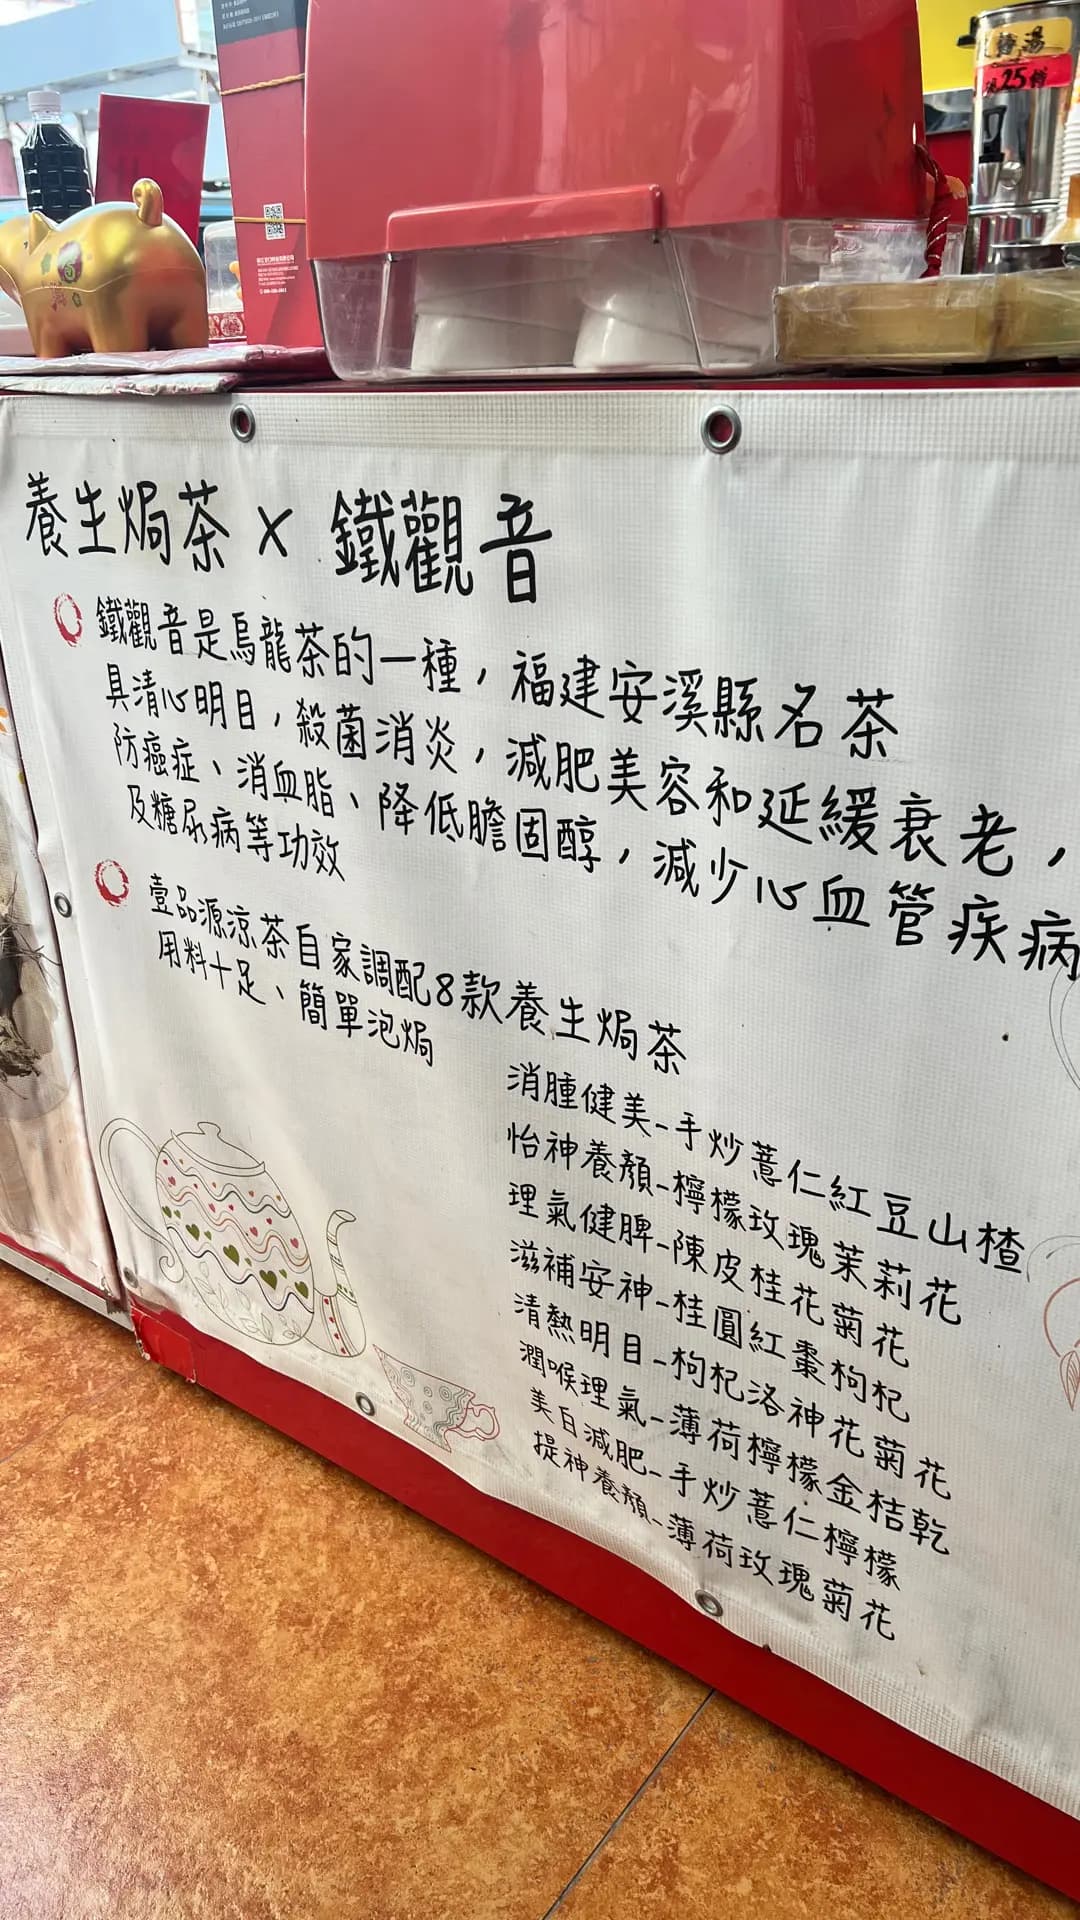 湯
25
養生焗茶 x 鐵觀音
鐵觀音是烏龍茶的一種，福建安溪縣名茶
具清心明目，殺菌消炎，減肥美容和延緩衰老，
防癌症、消血脂、降低膽固醇，減少心血管疾病
及糖尿病等功效
壹品源涼茶自家調配8款養生焗茶
用料十足、簡單泡焗
消腫健美-手炒薏仁紅豆山楂
怡神養顏-檸檬玫瑰茉莉花
理氣健脾-陳皮桂花菊花
滋補安神-桂圓紅棗枸杞
清熱明目-枸杞洛神花菊花
潤喉理氣-薄荷檸檬金桔乾
美白減肥-手炒薏仁檸檬
提神養顏-薄荷玫瑰菊花